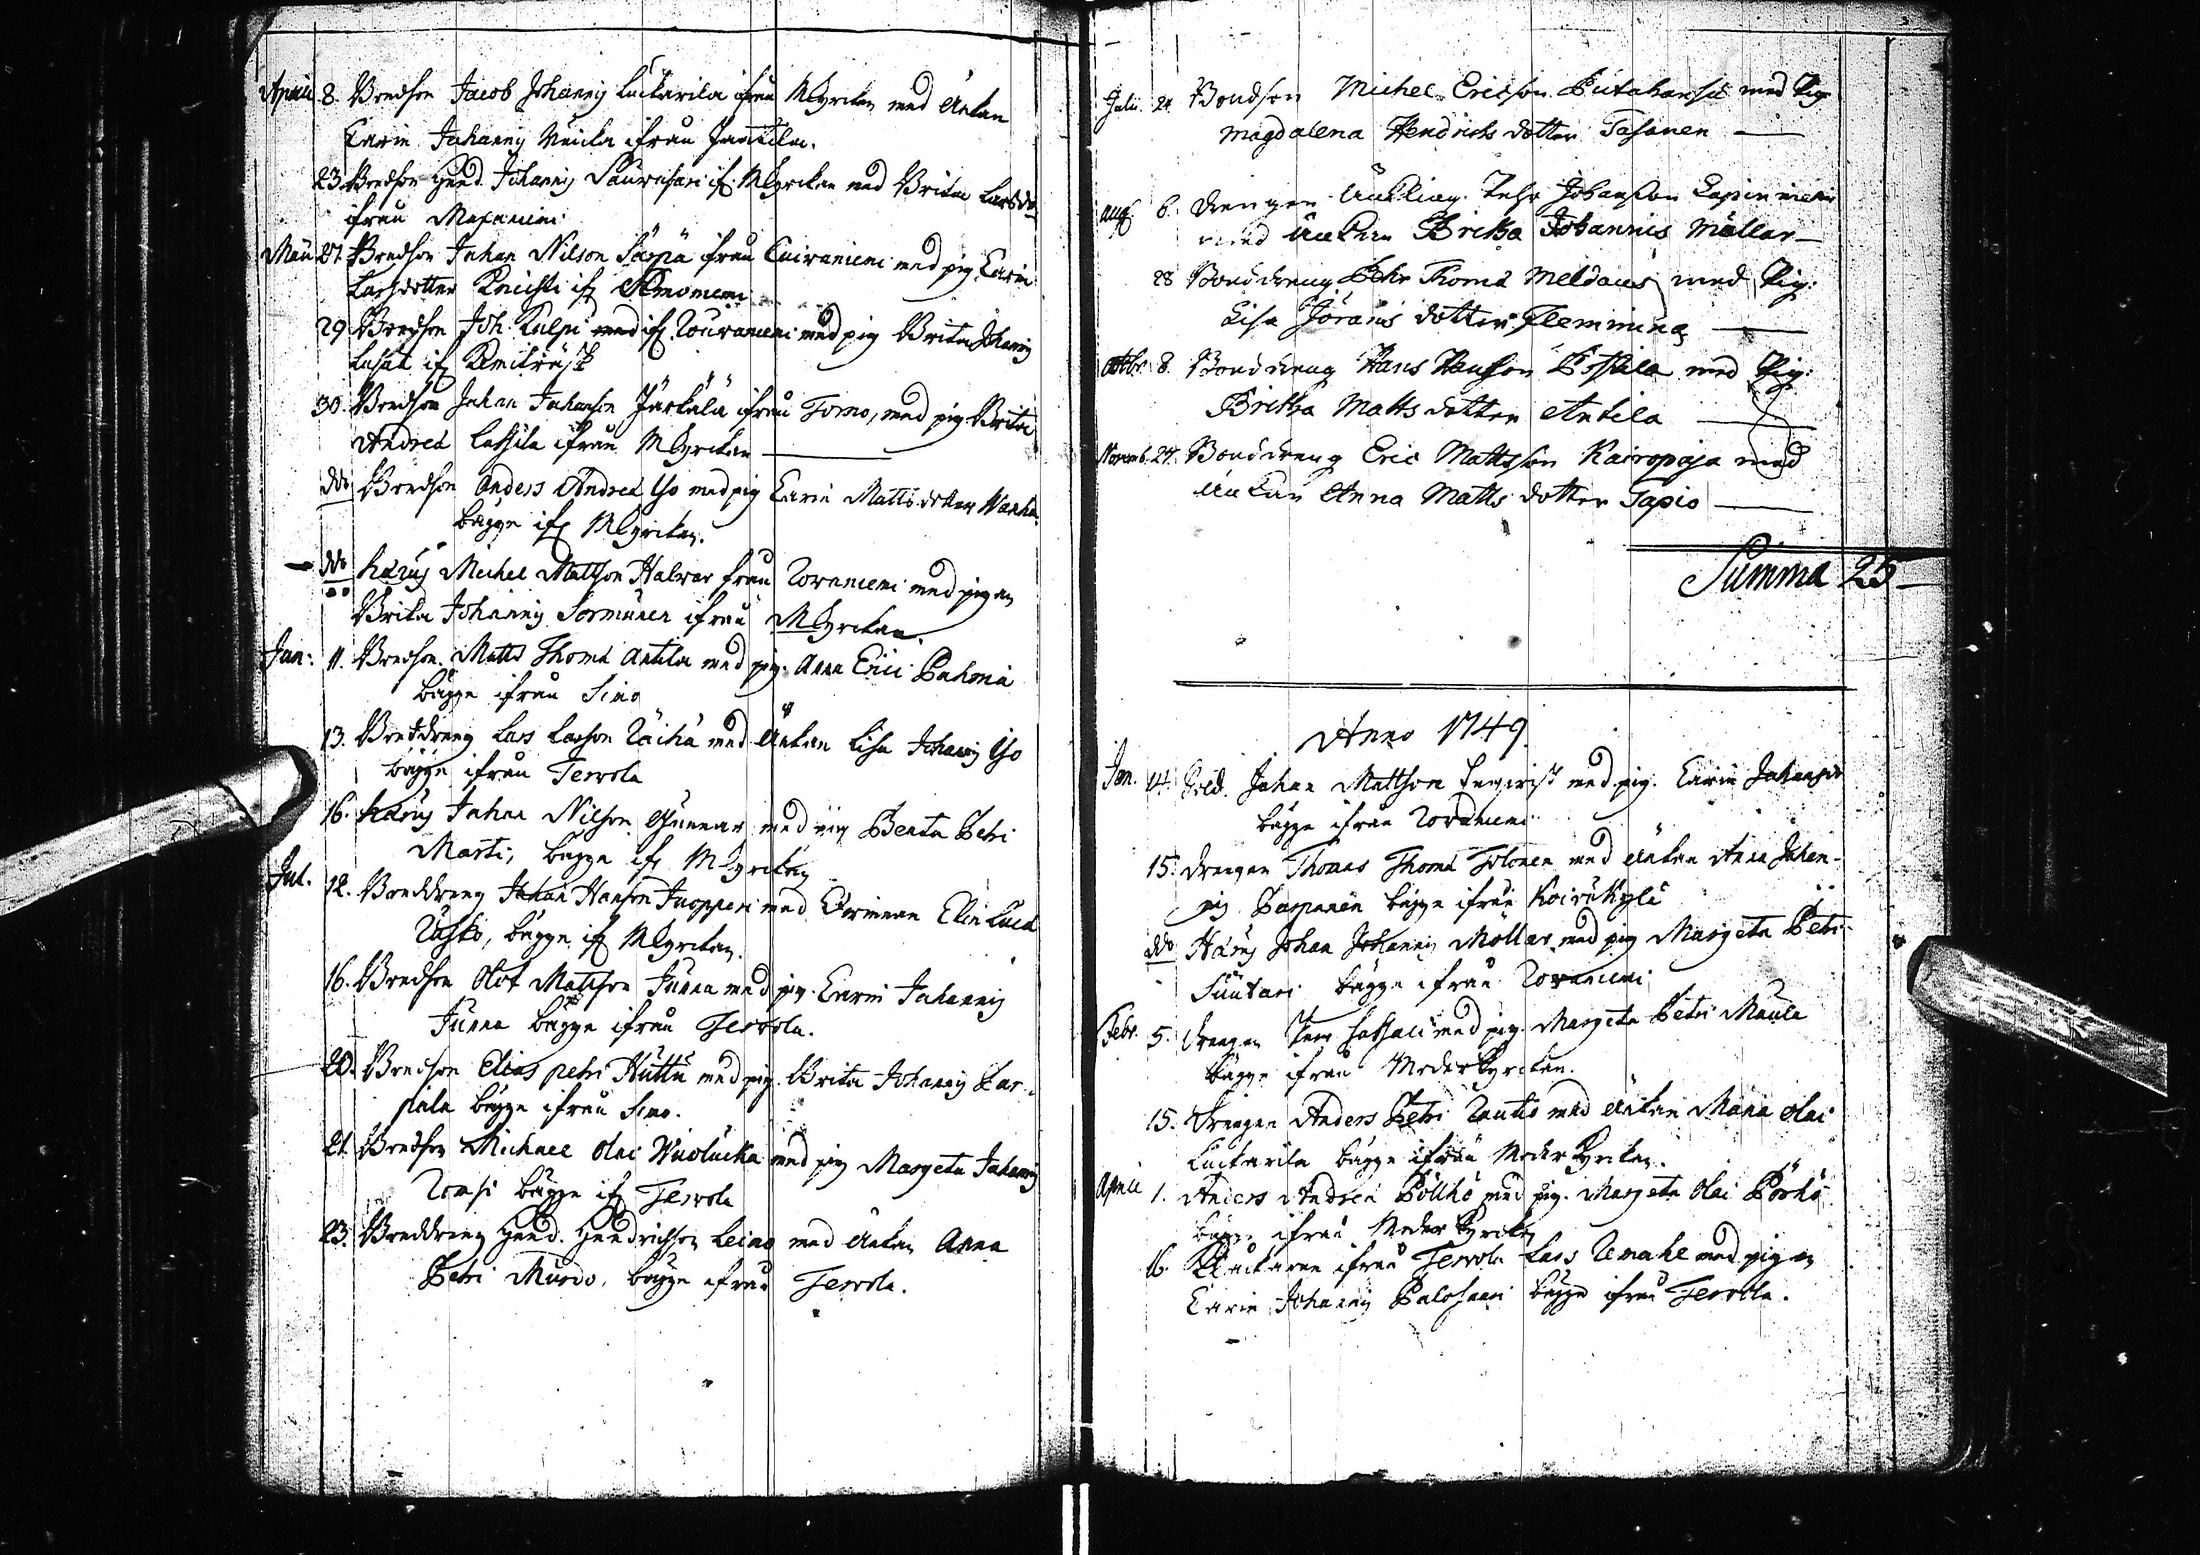 Aprili 8. Bondson Jacob Johannis Luckarila ifrån MKyrckan med Änkan
Carin Johannis ifrån Jaatila.
23 Bondson Hend. Johannis Saurusari if. MKyrckan med Brita Larsdr
ifrån
Maii 27. Bondson Johan Nilson Särpä ifrån Cuivaniemi med pig. Carin
Larsdotter if
29. Bondson Joh. Kulpi med if Rouvaniemi med pig Brita Johannis
if Kemiträsk
30. Bondson Johan Johanson Järkälä ifrån Torno, med pig. Brita
Andreæ Lassila ifrån MKyrckan
ddo Bondson Anders Andreæ Iso med pig Carin Matts dotter Wanha
bägge if MKyrckan.
ddo Michel Mattson Halvar från Rovaniemi med pigan
Brita Johannis Sormunen ifrån MKyrckan.
Jun: 11. Bondson. Matts Thomæ Antila med pig. Anna Erici Pahonia
bägge ifrån Simo
13. Bonddreng Lars Larson Räihä med Änkan Lisa Johannis Iso
bägge ifrån Tervola
16. Johan Nilson Gunnar med pig Beata Petri
Marti, bägge if MKyrckan
Jul. 12. Bonddreng Johan Hanson Juopperi med Qvinnan Elin Lucæ
Rusko, bägge if MKyrckan.
16. Bondson Olof Mattson Junna med pig. Carin Johannis
Junna bägge ifrån Tervola.
20. Bondson Elias petri Huttu med pig. Brita Johannis Kar-
piala bägge ifrån Simo.
21. Bondson Michael Olai Wuolucka med pig Margeta Johannis
Romsi bägge if Tervola
23. Bonddreng Hend. Hendrichson Leino med Änkan Anna
Petri Murdo, bägge ifrån Tervola.
Julii. 24. Bondson Michel Ericson Piitahansu med Pig
Magdalena Hendrichs dotter Tasanen
Aug. 6. Drengen Pehr Johanson Lapinniemi
med Änkan Britha Johannis Möllar
28 Bonddreng Pehr Thomæ Meldaus med Pig:
Lisa Jörans dotter Flemming
Octbr. 8. Bonddreng Hans Hanson Pessala med Pig:
Britha Matts dotter Antila
Novemb. 27. Bonddreng Eric Mattsson Kairopaja med
Änkan Anna Matts dotter Tapio
Summa 25
Anno 1749.
Jan. 14. Sold. Johan Mattson med pig. Carin Johansdr
bägge ifrån Rovaniemi
15. Drengen Thomas Thomæ Tolonen med Änkan Anna Johan-
nis Paspanen bägge ifrån Koivukylä
ddo Johan Johannis Möllar med pig Margeta Petri
Suutari bägge ifrån Rovaniemi
Febr. 5. Drengen med pig. Margeta Petri Maula
bägge ifrån ModerKyrckan.
15. Drengen Anders Petri Rautio med Änkan Maria Olai
Luckarila bägge ifrån ModerKyrckan.
Aprili 1. Anders Andreæ Pöllhö med pig. Margeta Olai Pörhö
bägge ifrån ModerKyrckan
16. Klockaren ifrån Tervola Lars Umahe med pigan
Carin Johannis Palosaari bägge ifrån Tervola.